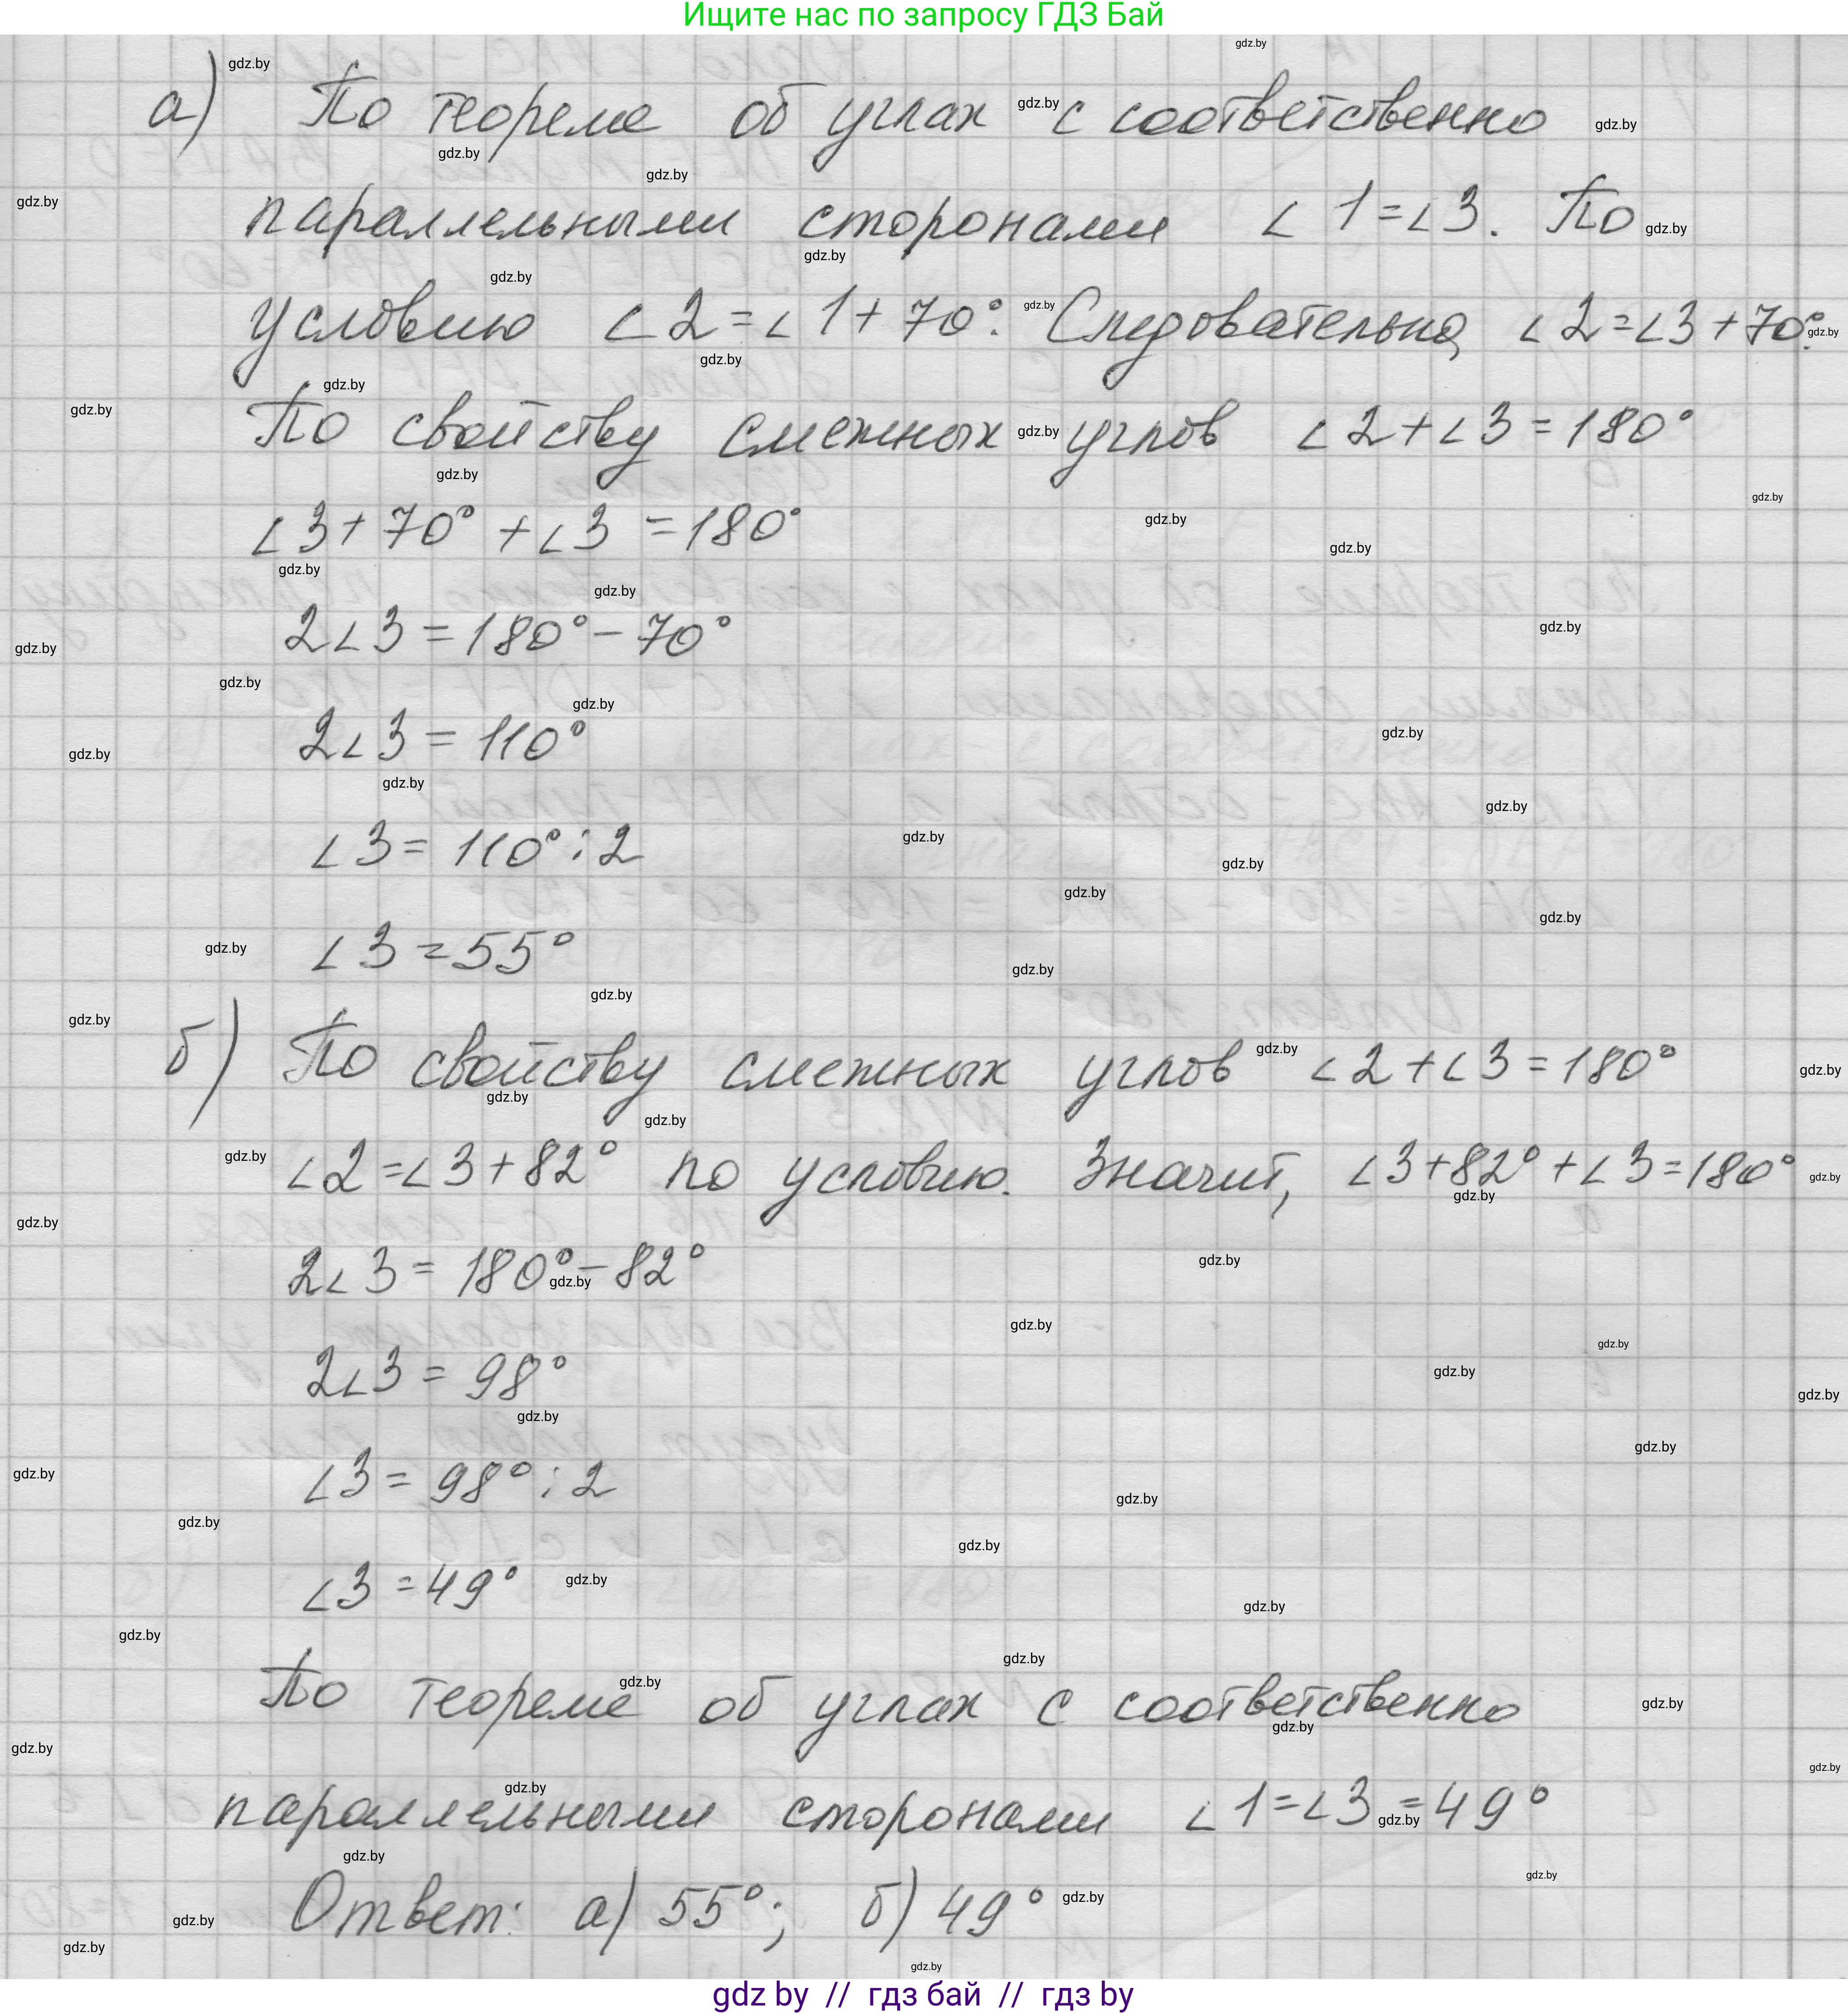 Ищите нас по запросу ГДЗ Бай
а) По теореме об углах с соответственно
параллельными сторонами ∠1=∠3. По
условию ∠2=∠1+70°. Следовательно, ∠2=∠3+70°.
По свойству смежных углов ∠2+∠3=180°
∠3+70°+∠3=180°
2∠3=180°-70°
2∠3=110°
∠3=110°:2
∠3=55°
б) По свойству смежных углов ∠2+∠3=180°
∠2=∠3+82° по условию. Значит, ∠3+82°+∠3=180°
2∠3=180°-82°
2∠3=98°
∠3=98°:2
∠3=49°
По теореме об углах с соответственно
параллельными сторонами ∠1=∠3=49°
Ответ: а) 55°; б) 49°
gdz by // гдз бай // гдз by